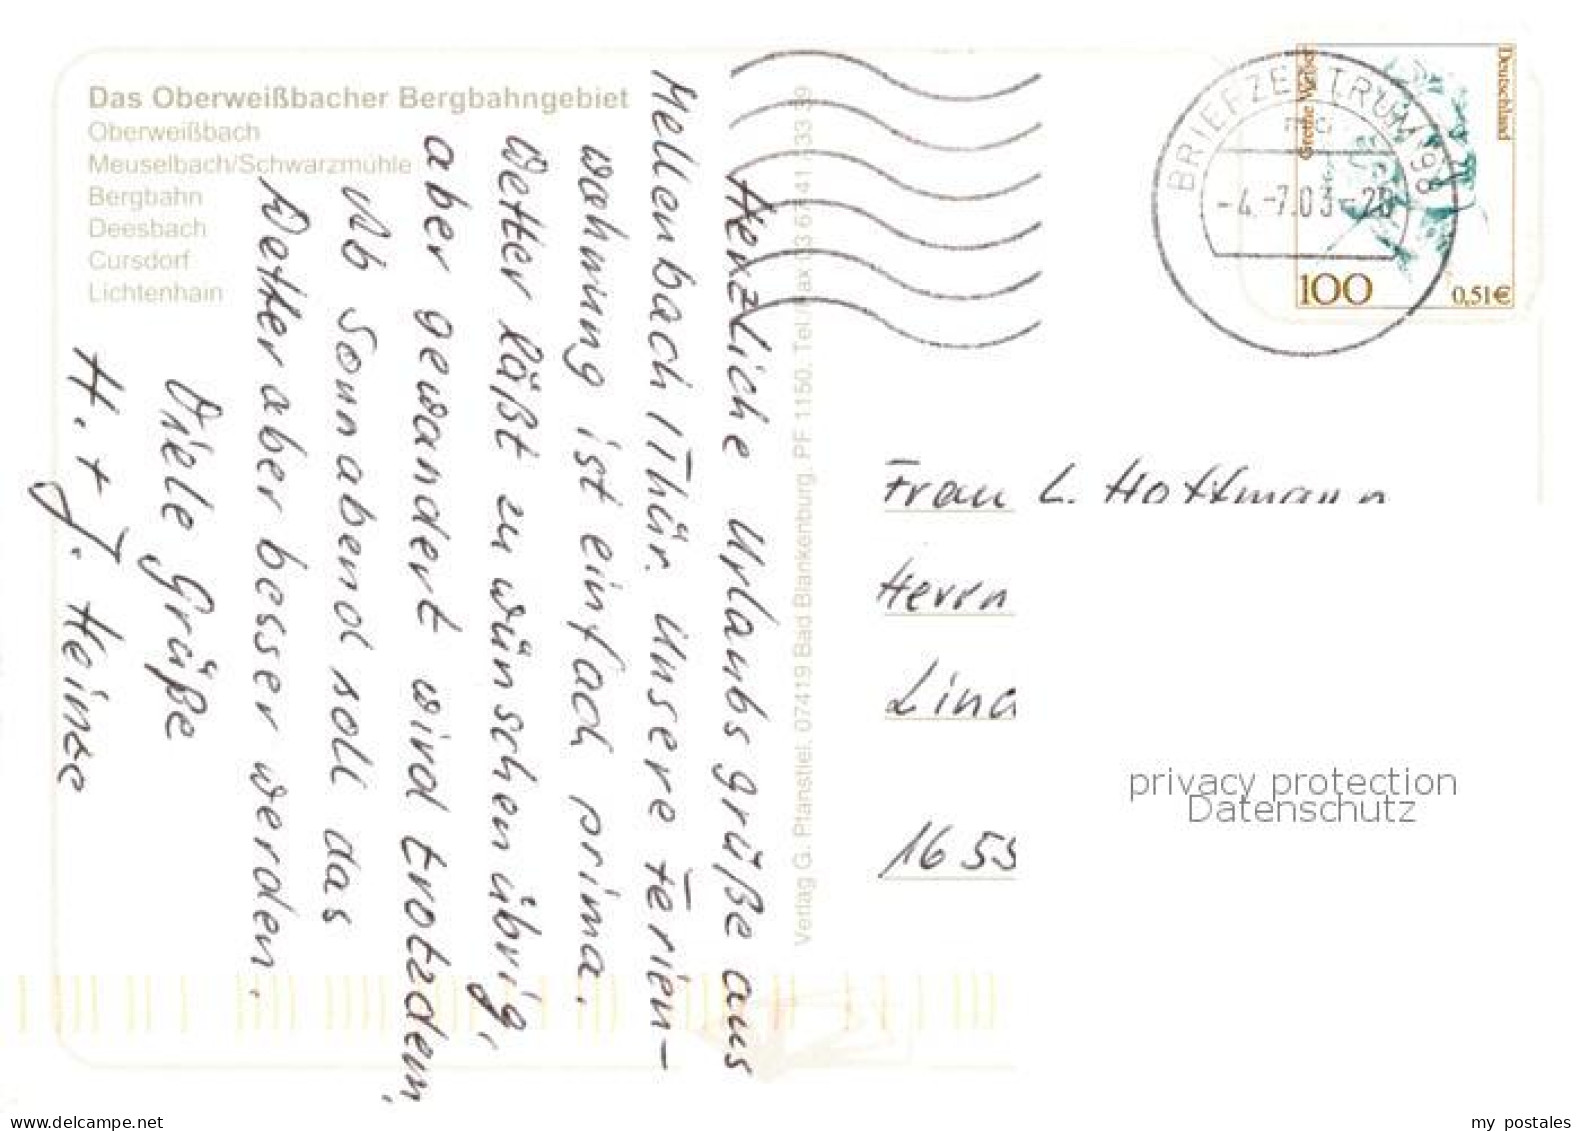 Das Oberweißbacher Bergbahngebiet
Oberweißbach
Meuselbach/Schwarzmühle
Bergbahn
Deesbach
Cursdorf
Lichtenhain
Herzliche Urlaubsgrüße aus
Mellenbach/Thür. Unsere Ferien-
wohnung ist einfach prima.
Wetter läßt zu wünschen übrig,
aber gewandert wird trotzdem.
Ab Sonnabend soll das
Wetter aber besser werden.
Viele Grüße
H. + J. Heinze
Verlag G. Pfanstiel, 07419 Bad Blankenburg, PF 1150, Tel./Fax
BRIEFZENTRUM 98
-4.-7.03-20
Grethe Weiser
Deutschland
100
0,51€
Frau L. Hoffmann
Herrn
Lind
1655
privacy protection
Datenschutz
www.delcampe.net
my postales